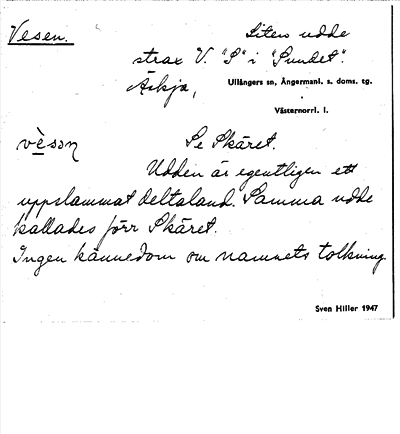 Vesen. Liten udde
strax V. "S" i "Sundet".
Äskja, Ullångers sn, Ångermanl. s. doms. tg.
Västernorrl. l.
vèsəɲ Se Skäret.
Udden är egentligen ett
uppslammat deltaland. Samma udde
kallades förr Skäret.
Ingen kännedom om namnets tolkning.
Sven Hiller 1947